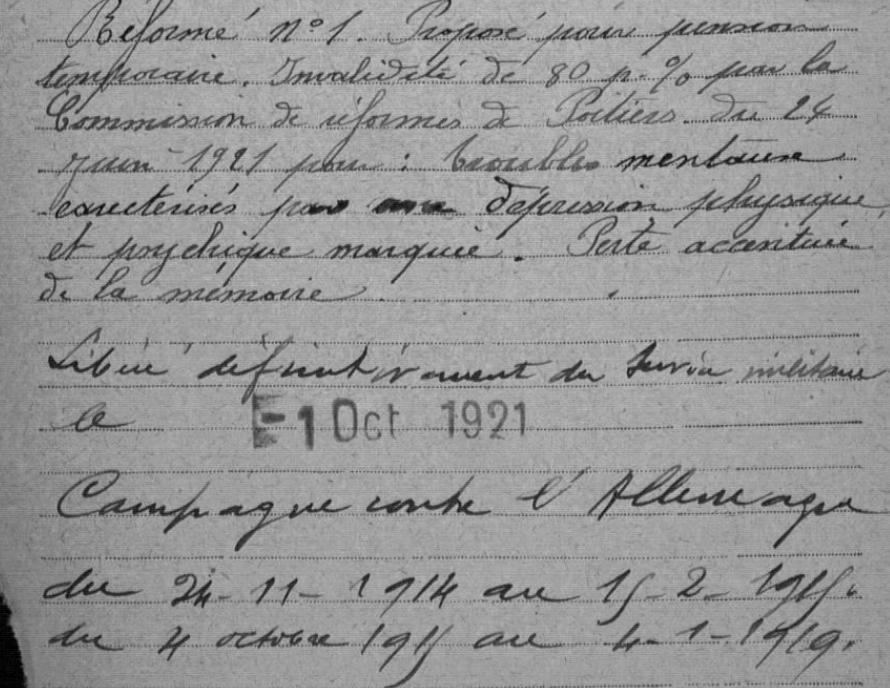 Réformé n° 1. Proposé pour pension
temporaire. Invalidité de 80 p. % par la
Commission de réformes de Poitiers du 24
juin 1921 pour : troubles mentaux
caractérisés par une dépression physique
et psychique marquée. Perte accentuée
de la mémoire
Libéré définitivement du service militaire
le 1 Oct 1921
Campagne contre l'Allemagne
du 24-11-1914 au 15-2-1915.
du 4 octobre 1915 au 4-1-1919.